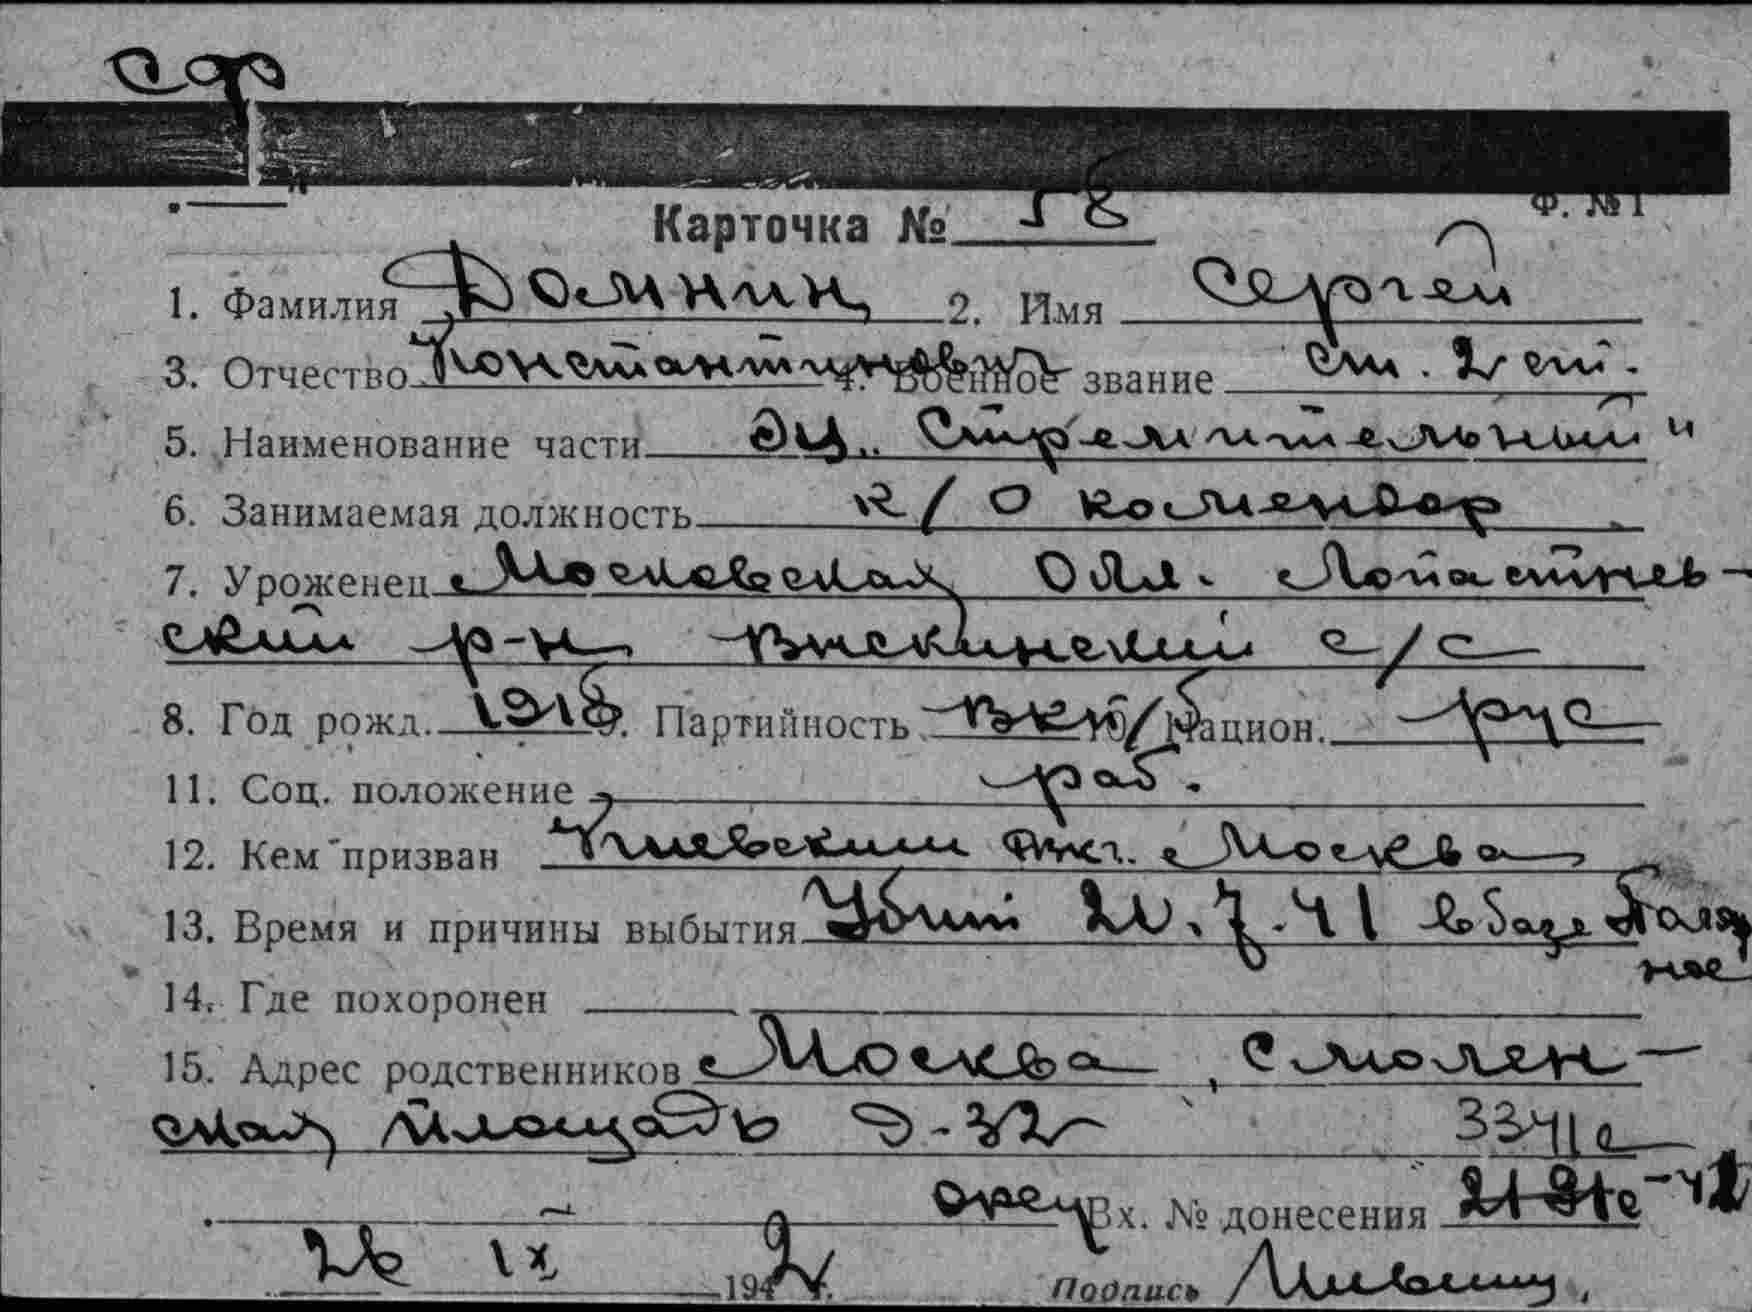 сф
Ф. № 1
Карточка № 58
1. Фамилия Домнин 2. Имя Сергей
3. Отчество Константинович 4. Военное звание ст. 2 ст.
5. Наименование части эм „Стремительный"
6. Занимаемая должность к/о комендор
7. Уроженец Московская обл. Лопастнев-
ский р-н Выскинский с/с
8. Год рожд. 1918 9. Партийность ВКП/б 10. Национ. рус
11. Соц. положение раб.
12. Кем призван Киевским РВК г. Москва
13. Время и причины выбытия Убит 20.7.41 в базе Поляр
ное
14. Где похоронен
15. Адрес родственников Москва, Смолен-
ская площадь д-32 3341с
Вх. № донесения -42
26 IX 1942 г. Подпись